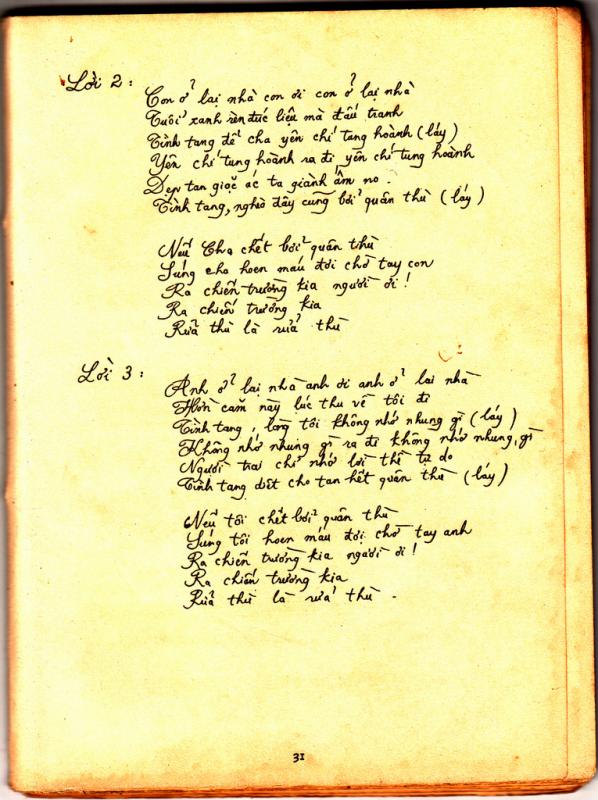 Lời 2 :
Con ở lại nhà con ơi con ở lại nhà
Tuổi xanh rèn đúc liệu mà đấu tranh
Tình tang để cha yên chí tang hoành (láy)
Yên chí tung hoành ra đi yên chí tung hoành
Dẹp tan giặc ác ta giành ấm no.
Tình tang, nghèo đây cũng bởi quân thù (láy)
Nếu Cha chết bởi quân thù
Súng cha hoen máu đợi chờ tay con
Ra chiến trường kia người ơi !
Ra chiến trường kia
Rửa thù là rửa thù
Lời 3 :
Anh ở lại nhà anh ơi anh ở lại nhà
Hờn căm này lúc thu về tôi đi
Tình tang, lòng tôi không nhớ nhung gì (láy)
Không nhớ nhung gì ra đi không nhớ nhung gì
Người trai chỉ nhớ lời thề tự do
Tình tang diệt cho tan hết quân thù (láy)
Nếu tôi chết bởi quân thù
Súng tôi hoen máu đợi chờ tay anh
Ra chiến trường kia người ơi !
Ra chiến trường kia
Rửa thù là rửa thù .
31